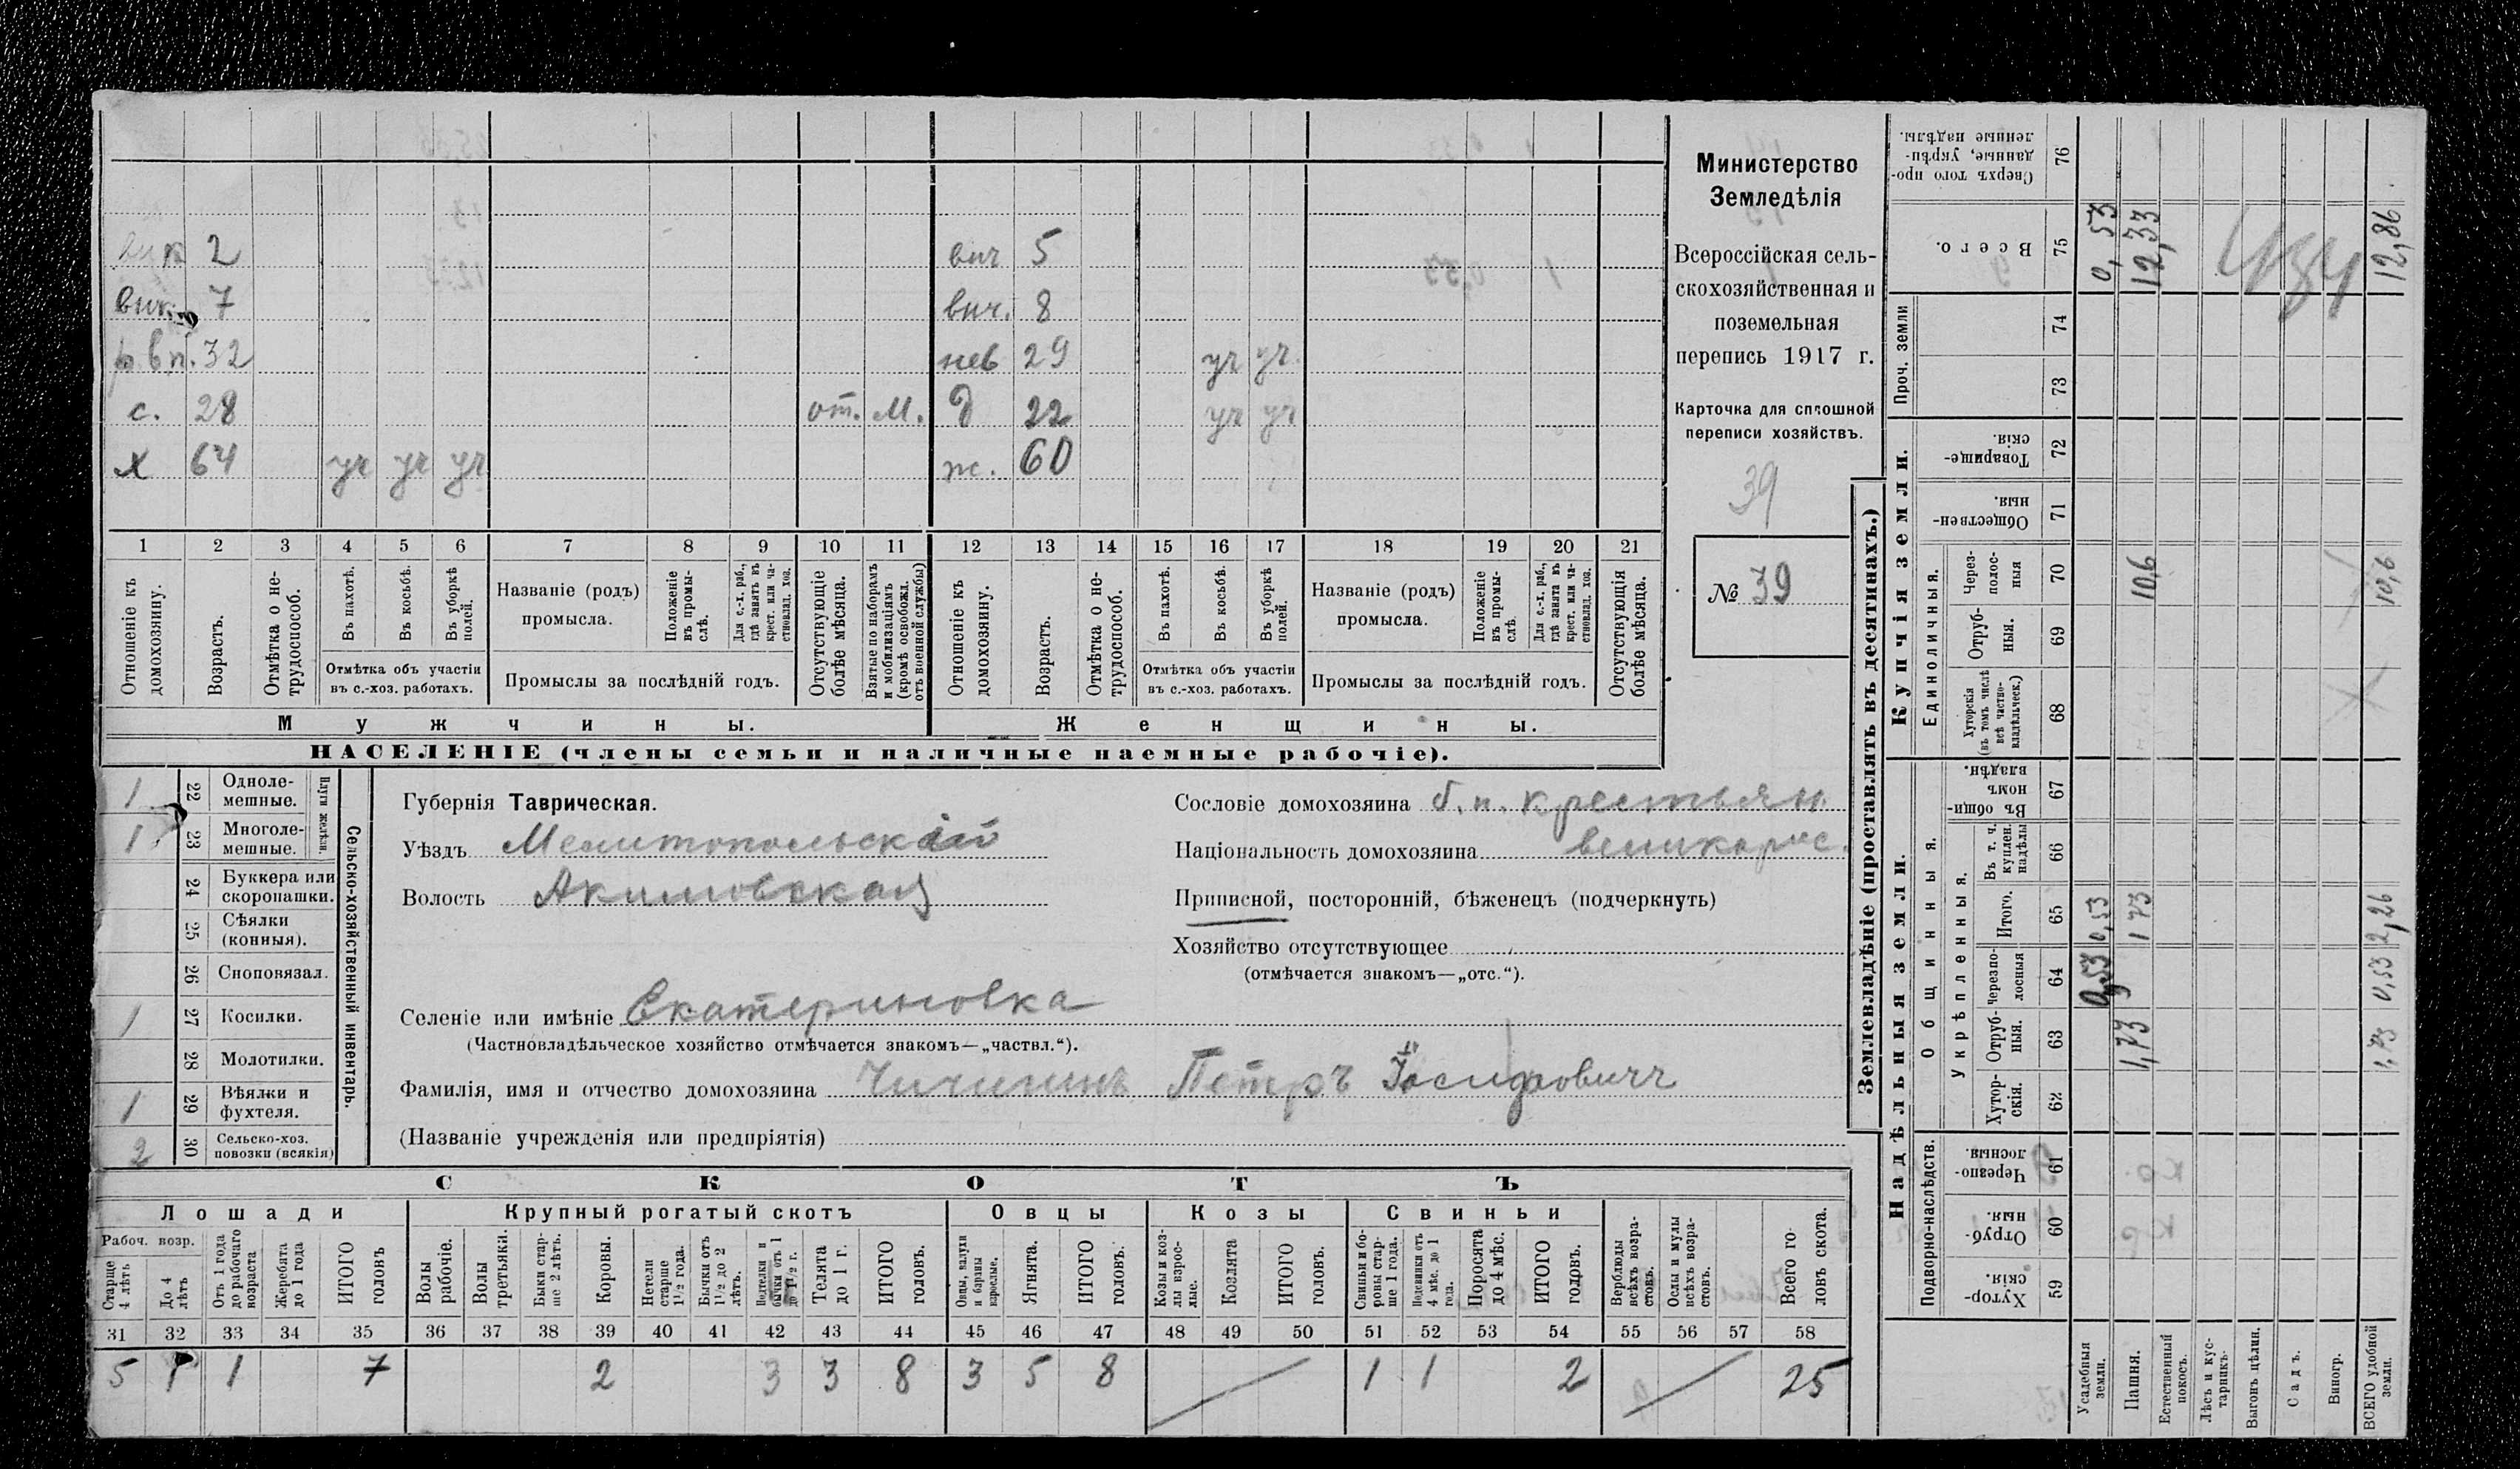 вик 2 вич 5
вик. 7 вич. 8
р. вп. 32 нев 29 уч уч.
с. 28 от. М. д 22 уч уч
х 64 уч уч уч ж. 60
1 2 3 4 5 6 7 8 9 10 11 12 13 14 15 16 17 18 19 20 21
Отношеніе къ домохозяину.
Возрастъ.
Отмѣтка о не-трудоспособ.
Въ пахотѣ.
Въ косьбѣ.
Въ уборкѣ полей.
Отмѣтка объ участіи
въ с.-хоз. работахъ.
Названіе (родъ)
промысла.
Положеніе въ промы-слѣ.
Для с.-х. раб., гдѣ занятъ въ крест. или ча-стновлад. хоз.
Промыслы за послѣдній годъ.
Отсутствующіе болѣе мѣсяца.
Взятые по наборамъ и мобилизаціямъ (кромѣ освобожд. отъ военной службы)
Отношеніе къ домохозяину.
Возрастъ.
Отмѣтка о не-трудоспособ.
Въ пахотѣ.
Въ косьбѣ.
Въ уборкѣ полей.
Отмѣтка объ участіи
въ с.-хоз. работахъ.
Названіе (родъ)
промысла.
Положеніе въ промы-слѣ.
Для с.-х. раб., гдѣ занята въ крест. или ча-стновлад. хоз.
Промыслы за послѣдній годъ.
Отсутствующія болѣе мѣсяца.
Мужчины. Женщины.
НАСЕЛЕНІЕ (члены семьи и наличные наемные рабочіе).
Министерство
Земледѣлія
Всероссійская сель-
скохозяйственная и
поземельная
перепись 1917 г.
Карточка для сплошной
переписи хозяйствъ.
39
№ 39
1 22 Одноле-мешные.
1 23 Многоле-мешные.
Плуги желѣзн.
24 Буккера или скоропашки.
25 Сѣялки (конныя).
26 Сноповязал.
1 27 Косилки.
28 Молотилки.
1 29 Вѣялки и фухтеля.
2 30 Сельско-хоз. повозки (всякія)
Сельско-хозяйственный инвентарь.
Губернія Таврическая.
Уѣздъ Мелитопольскій
Волость Акимовская
Селеніе или имѣніе Екатериновка
(Частновладѣльческое хозяйство отмѣчается знакомъ—„частвл.“).
Фамилія, имя и отчество домохозяина Чичининъ Петръ Іосифовичъ
(Названіе учрежденія или предпріятія)
Сословіе домохозяина б. п. крестьян.
Національность домохозяина великорос.
Приписной, посторонній, бѣженецъ (подчеркнуть)
Хозяйство отсутствующее
(отмѣчается знакомъ—„отс.“).
СКОТЪ
Лошади Крупный рогатый скотъ Овцы Козы Свиньи
Рабоч. возр.
Старше 4 лѣтъ
До 4 лѣтъ
Отъ 1 года до рабочаго возраста
Жеребята до 1 года
ИТОГО головъ
Волы рабочіе.
Волы третьяки.
Быки стар-ше 2 лѣтъ.
Коровы.
Нетели старше 1½ года.
Бычки отъ 1½ до 2 лѣтъ.
Подтелки и бычки отъ 1 до 1½ г.
Телята до 1 г.
ИТОГО головъ.
Овцы, валухи и бараны взрослые.
Ягнята.
ИТОГО головъ.
Козы и коз-лы взрос-лые.
Козлята
ИТОГО головъ.
Свиньи и бо-ровы стар-ше 1 года.
Подсвинки отъ 4 мѣс. до 1 года.
Поросята до 4 мѣс.
ИТОГО головъ.
Верблюды всѣхъ возра-стовъ.
Ослы и мулы всѣхъ возра-стовъ.
Всего го-ловъ скота.
31 32 33 34 35 36 37 38 39 40 41 42 43 44 45 46 47 48 49 50 51 52 53 54 55 56 57 58
5 1 1 7 2 3 3 8 3 5 8 1 1 2 25
Землевладѣніе (проставлять въ десятинахъ.)
Надѣльныя земли.
Подворно-наслѣдств.
Хутор-скія. 59
Отруб-ныя. 60
Черезпо-лосныя. 61
Общинныя.
Укрѣпленныя.
Хутор-скія. 62
Отруб-ныя. 63
Черезпо-лосныя 64
Итого. 65
Въ т. ч. куплен. надѣлы 66
Въ общин-номъ владѣн. 67
Купчія земли.
Единоличныя.
Хуторскія (въ томъ числѣ всѣ частно-владѣльческ.) 68
Отруб-ныя. 69
Через-полос-ныя 70
Обществен-ныя. 71
Товарище-скія. 72
Проч. земли
73
74
Всего. 75
Сверхъ того про-данные, укрѣп-ленные надѣлы. 76
Усадебныя земли. 0,53 0,53 0,53
Пашня. 1,73 1 73 10,6 12,33
Естественный покосъ.
Лѣсъ и кус-тарникъ.
Выгонъ цѣлин.
Садъ.
Виногр.
ВСЕГО удобной земли. 1,73 0,53 2,26 10,6 12,86